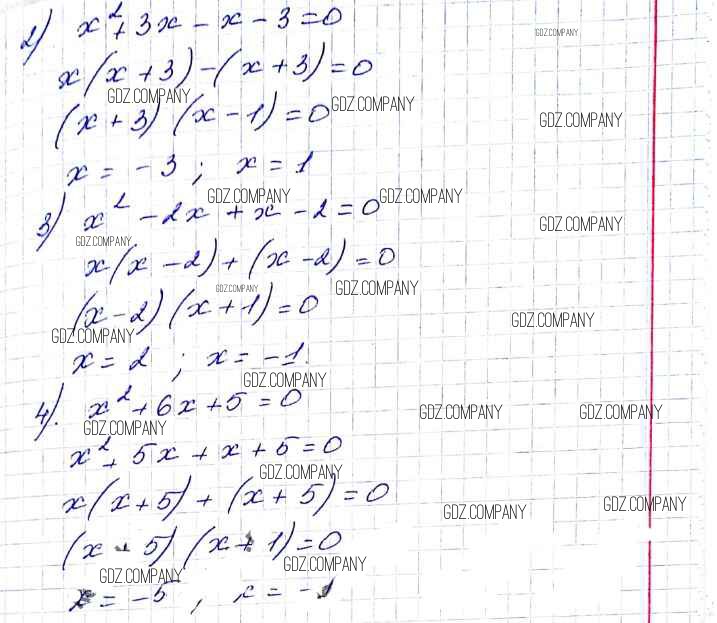 2) x² + 3x - x - 3 = 0
GDZ.COMPANY
x(x + 3) - (x + 3) = 0
GDZ.COMPANY
GDZ.COMPANY
(x + 3) (x - 1) = 0
GDZ.COMPANY
x = -3 ; x = 1
GDZ.COMPANY
GDZ.COMPANY
3) x² - 2x + x - 2 = 0
GDZ.COMPANY
GDZ.COMPANY
x(x - 2) + (x - 2) = 0
GDZ.COMPANY
GDZ.COMPANY
(x - 2) (x + 1) = 0
GDZ.COMPANY
GDZ.COMPANY
x = 2 ; x = -1
GDZ.COMPANY
4). x² + 6x + 5 = 0
GDZ.COMPANY
GDZ.COMPANY
GDZ.COMPANY
x² + 5x + x + 5 = 0
GDZ.COMPANY
x(x + 5) + (x + 5) = 0
GDZ.COMPANY
GDZ.COMPANY
(x + 5) (x + 1) = 0
GDZ.COMPANY
GDZ.COMPANY
x = -5 , x = -1